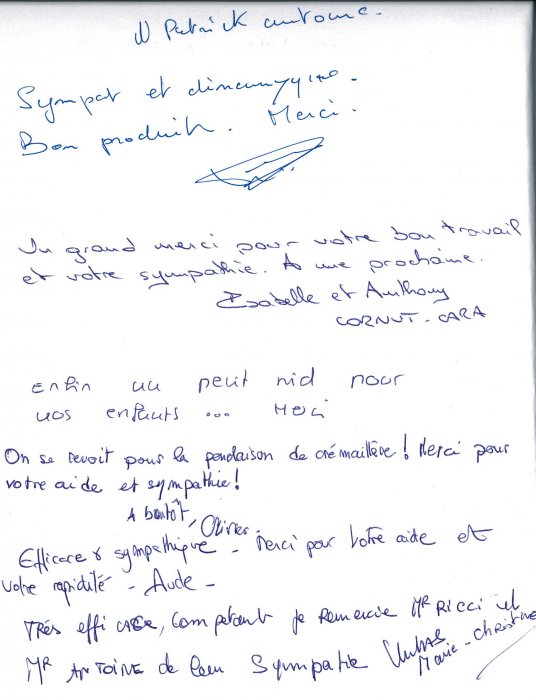 Patrick antoine.
Sympat et dinamyque.
Bon produit. Merci.
Un grand merci pour votre bon travail
et votre sympathie. A une prochaine.
Isabelle et Anthony
CORNUT-CARA
Enfin un petit nid pour
nos enfants ... Merci
On se revoit pour la pendaison de crémaillère ! Merci pour
votre aide et sympathie !
A bientôt, Olivier.
Efficace & sympathique - Merci pour votre aide et
votre rapidité - Aude -
TRÉS efficace, compétant je remercie MR RICCI et
MR ANTOINE de leur sympatie
Marie-Christine